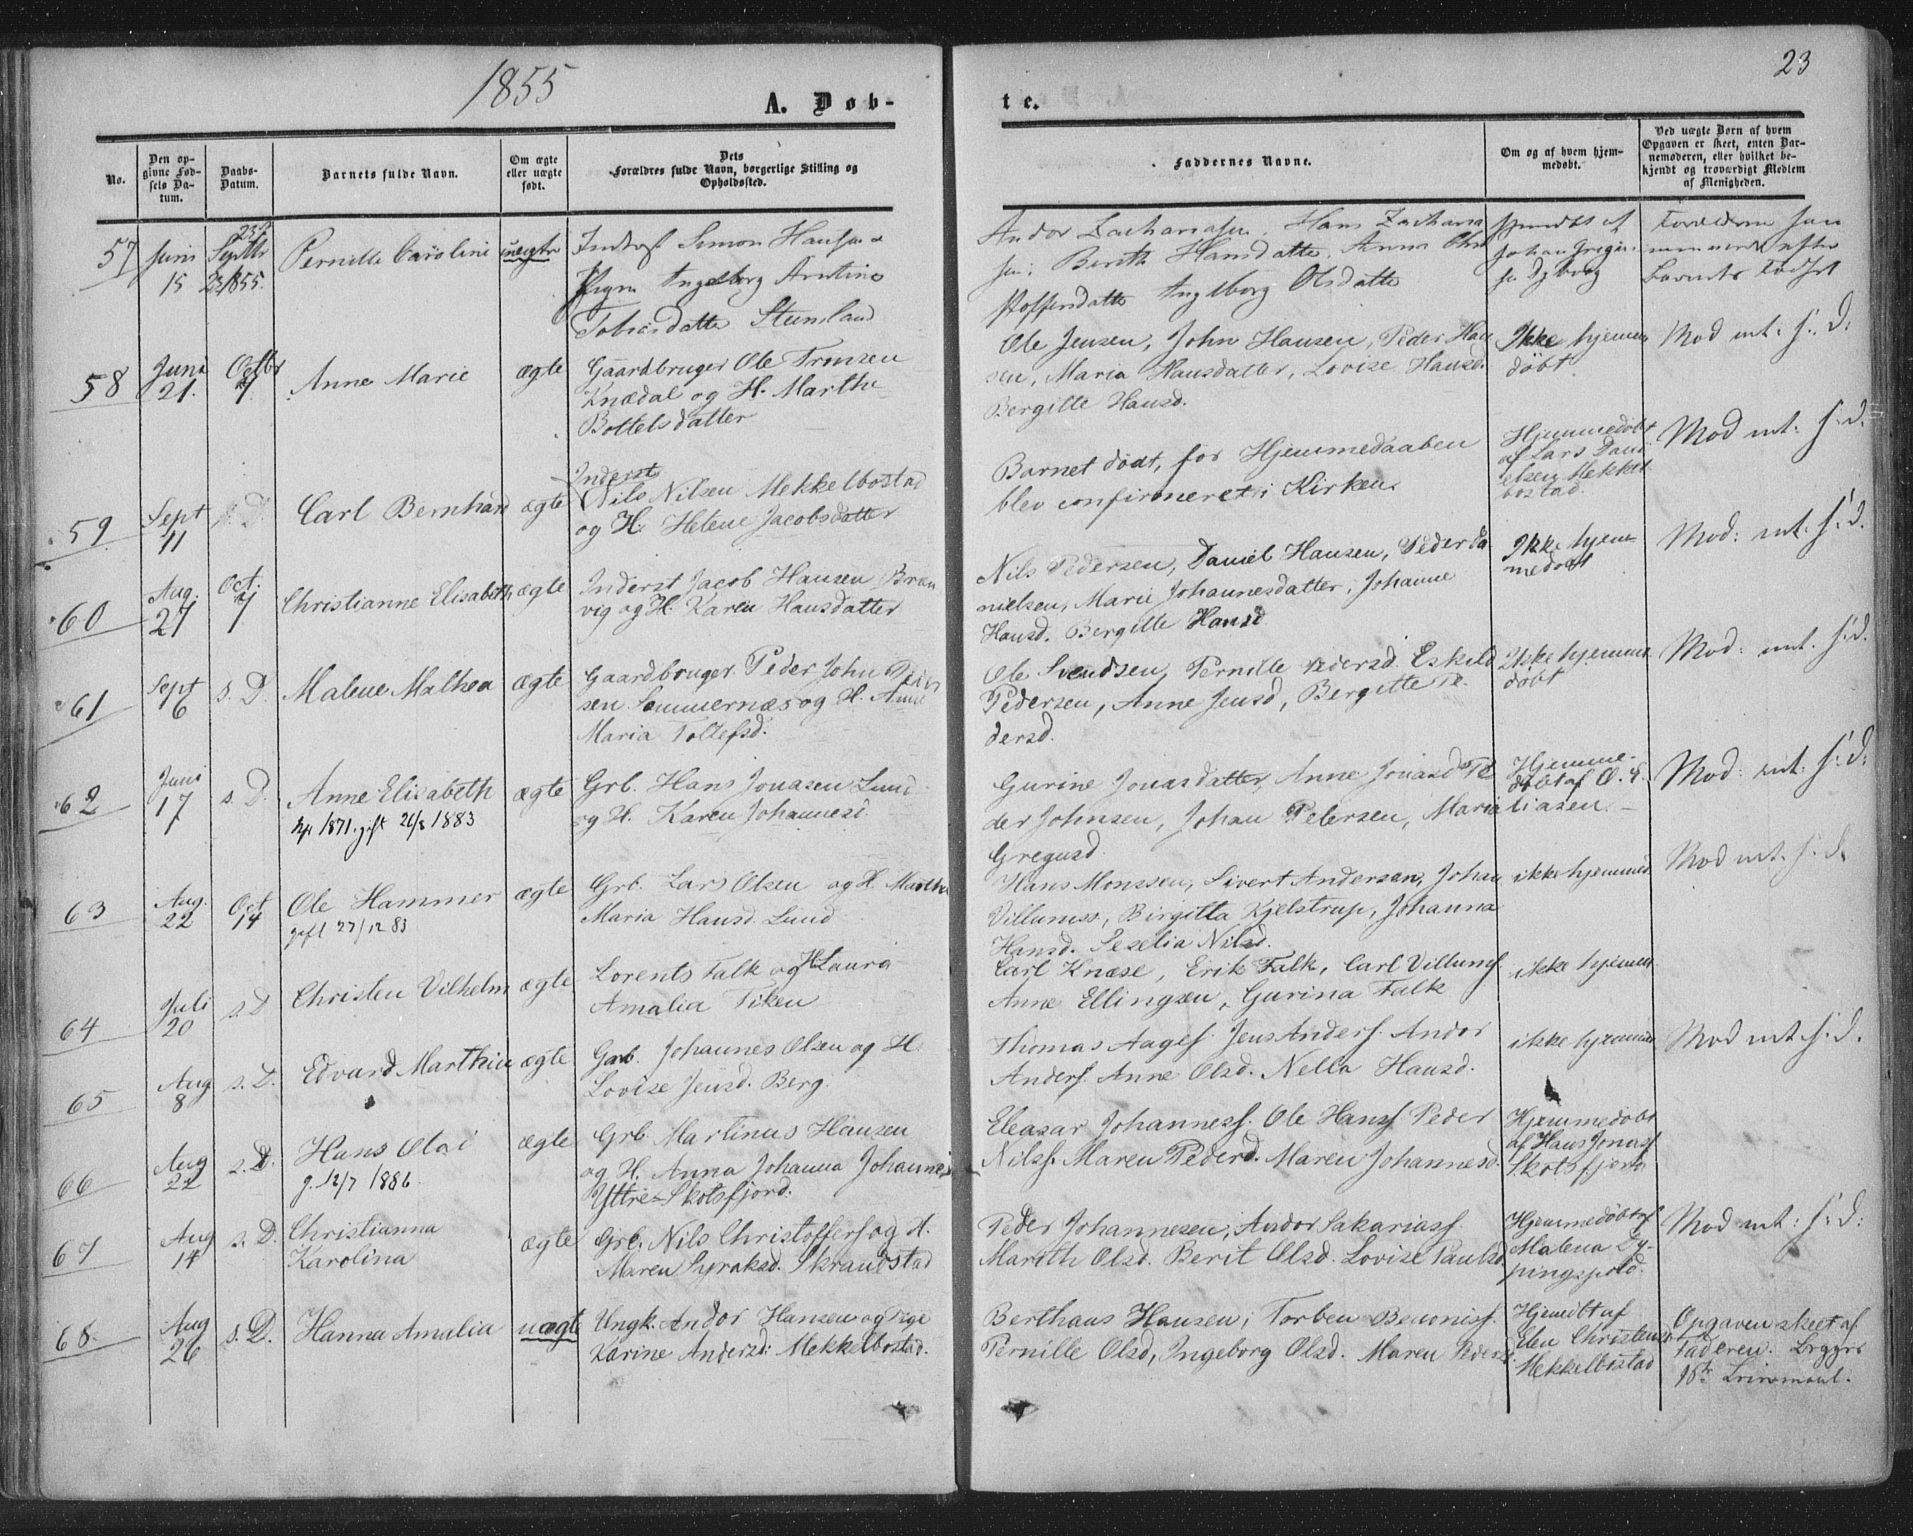 1855
A. Døb-
No.
Den op-
givne Fød-
sels Da-
tum.
Daabs-
Datum.
Barnets fulde Navn.
Om ægte
eller uægte
født.
Dets
Forældres fulde Navn, borgerlige Stilling og
Opholdssted.
57
Juni
15
Septbr
1855.
Pernille Caroline
uægte
Inderst Simon Hansen
Pigen Ingeborg Arntine
Tobiasdatter
58
Juni
21.
Octbr
7
Anne Marie
ægte
Gaardbruger Ole Tronsen
Knædal og H. Marthe
Bottelsdatter
59
Sept
11
s. D.
Carl Bernhard
ægte
Inderst
Nils Nilsen Mekkelbostad
og H. Helene Jacobsdatter
60
Aug.
27
Oct.
7
Christianne Elisabeth
ægte
Inderst Jacob Hansen Bræn
vig og H. Karen Hansdatter
61
Sept
6
s. D.
Malene Mathea
ægte
Gaardbruger Peder John Peder
sen Sommernæs og H. Anne
Maria Tollefsd.
62
Juni
17
s. D.
Anne Elisabeth
1871, gift 26/8 1883
ægte
Grb. Hans Jonasen Lund
og H. Karen Johannesd.
63
Aug.
22
Oct
14
Ole Hammer
gift 27/12 83
ægte
Grb. Lars Olsen og H. Marthe
Maria Hansd. Lund
64
Juli
20
s. D
Christen Vilhelm
ægte
Lorents Falk og H Laura
Amalia Tiken
65
Aug
8
s. D.
Edvard Marthin
ægte
Grb. Johannes Olsen og H.
Lovise Jensd. Berg.
66
Aug
22
s. D.
Hans Olai
g. 12/7 1886.
ægte
Grb Martinus Hansen
og H. Anna Johanna Johannes
Yttre-Skotsfjord.
67
Aug
14
s. D.
Christianna
Karolina
ægte
Grb. Nils Christoffers. og H.
Maren Syraksd. Skrandstad
68
Aug
26
s. D.
Hanna Amalia
uægte
Ungk. Andor Hansen og Pige
Karine Andersd: Mekkelbostad.
23
te.
Faddernes Navne.
Om og af hvem hjem-
medøbt.
Ved uægte Børn af hvem
Opgaven er skeet, enten Bar-
nemoderen, eller hvilket be-
kjendt og troværdigt Medlem
af Menigheden.
Andor Zachariasen, Hans Zacharia
sen; Berith Hansdatter. Anne
Ingeborg Olsdatter
Ole Jensen, John Hansen, Peder Han
sen, Maria Hansdatter, Lovise Hansd.
Bergitte Hansd.
Ikke hjemme
døbt.
Mod mt: s. D.
Barnet dødt, før Hjemmedaaben
blev confirmeret i Kirken.
Hjemmedøbt
af Lars Dani
elsen Mekkel
bostad.
Mod mt: s. D.
Nils Pedersen, Daniel Hansen, Peder Da
nielsen, Marie Johannesdatter, Johanne
Hansd. Bergitte Hansd
Ikke hjem
medøbt
Mod: mt. s. D.
Ole Svendsen, Pernille Pedersd. Eskild
Pedersen, Anne Jensd, Bergitte Pe
dersd.
Ikke hjemme
døbt
Mod: mt. s. D.
Gurine Jonasdatter, Anne Jonasd Pe
der Johnsen, Johan Petersen, Maria
Gregusd.
Hjemme-
døbt af O.
liasen.
Mod: mt: s. D.
Hans Monssen, Sivert Andersen, Johan
Villumss, Birgitta Kjelstrup, Johanna
Hansd. Seselia Nilsd.
ikke hjemmed
Mod mt. s. D.
Carl Knæse, Erik Falk, Carl Villums.
Anne Ellingsen, Gurina Falk
ikke hjemmed
Thomas Aages. Jens Anders. Andor
Anders. Anne Olsd. Nella Hansd.
ikke hjemmed
Mod mt s. D.
Eleasar Johanness. Ole Hanss. Peder
Nilss. Maren Pedersd. Maren Johannesd.
Hjemmedøbt
af Hans Jonass
Skotsfjord
Peder Johannesen, Andor Sakariass.
Marith Olsd. Berit Olsd. Lovise Paulsd
Hjemmedøbt af
Malena
Mod mt: s: D:
Berthaus Hansen; Torben Benonis.
Pernille Olsd, Ingeborg Olsd. Maren Pedersd.
Hjemdbt af
Elen Christensd
Mekkelbostad
Opgaven skeet af
Faderen.